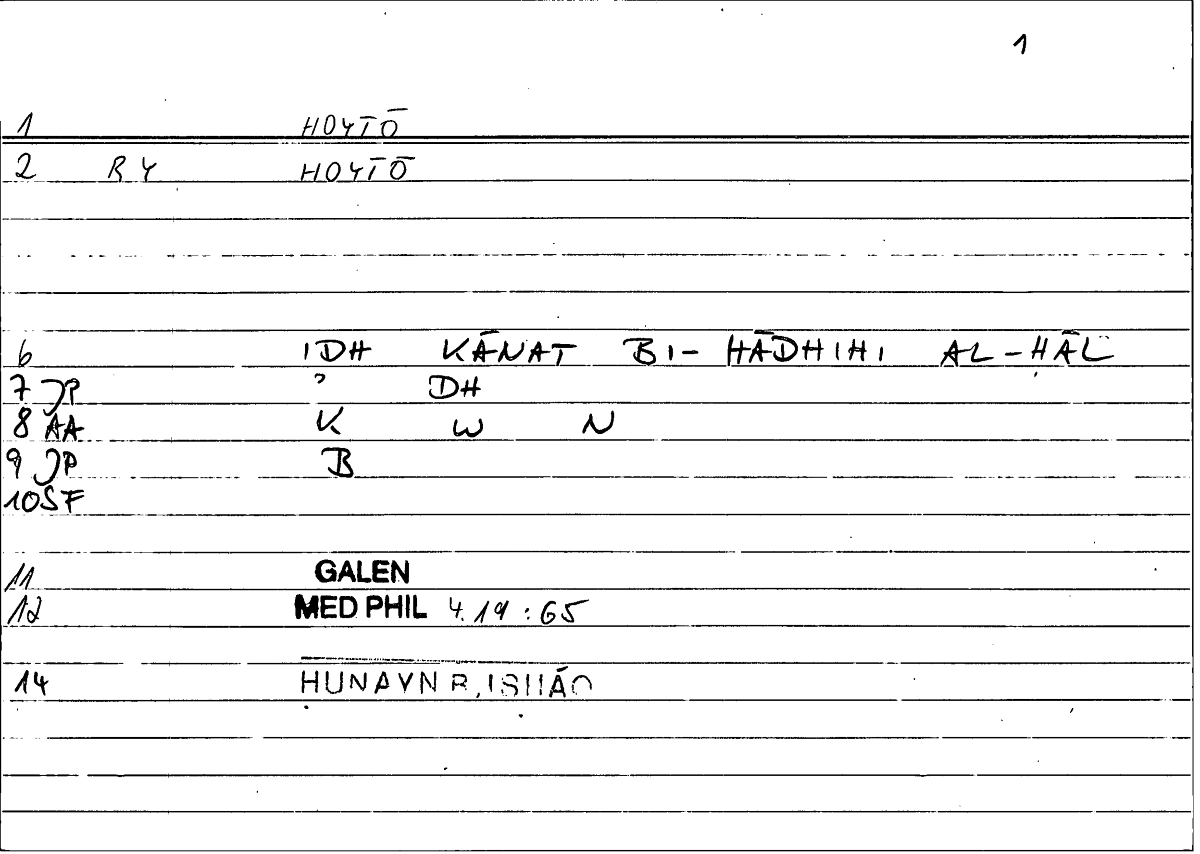 1
1 HOYTŌ
2 RY HOYTŌ
6 IDH KĀNAT BI- HĀDHIHI AL-ḤĀL
7 JP ʾ DH
8 AA K W N
9 JP B
10 SF
11 GALEN
12 MED PHIL 4.19:65
14 ḤUNAYN B. ISḤĀQ